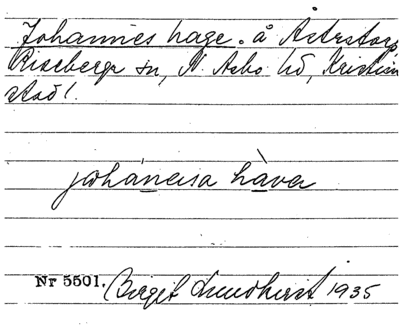 Johannes hage. å Åstrstorp,
Riseberga sn, N. Asbo hd, Kristian
stad l.
johánesa hàva
Nr 5501. Bergit Lundkvist 1935